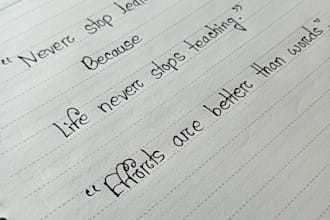 “Never stop
Because
Life never stops teaching.”
“Efforts are better than words”